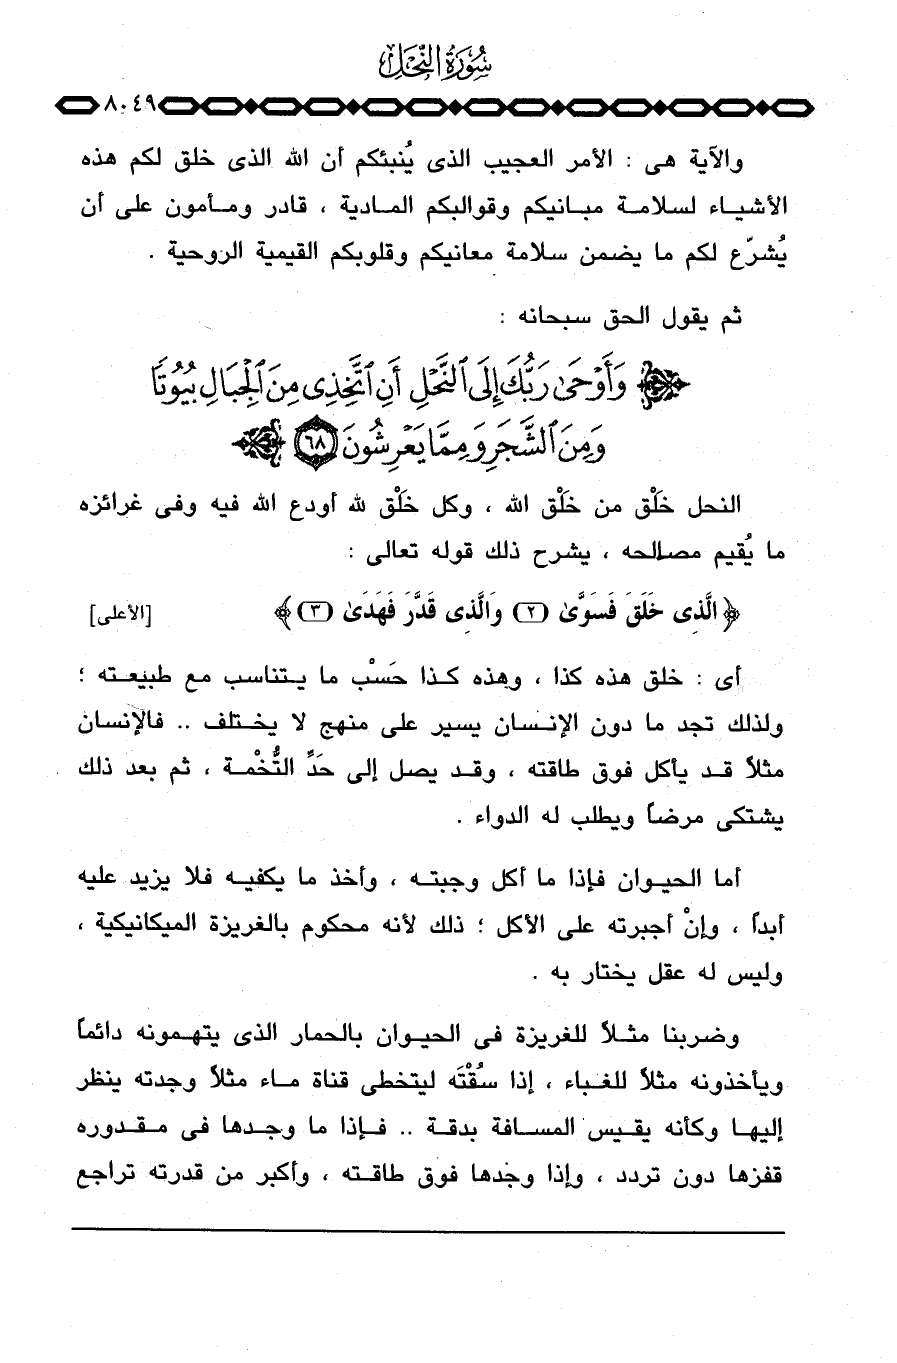 سُورَةُ النَّحْلِ
٨٠٤٩
والآية هى : الأمر العجيب الذى يُنبئكم أن الله الذى خلق لكم هذه
الأشياء لسلامة مبانيكم وقوالبكم المادية ، قادر ومأمون على أن
يُشرّع لكم ما يضمن سلامة معانيكم وقلوبكم القيمية الروحية .
ثم يقول الحق سبحانه :
وَأَوْحَىٰ رَبُّكَ إِلَى ٱلنَّحْلِ أَنِ ٱتَّخِذِى مِنَ ٱلْجِبَالِ بُيُوتًا
وَمِنَ ٱلشَّجَرِ وَمِمَّا يَعْرِشُونَ ٦٨
النحل خَلْق من خَلْق الله ، وكل خَلْق لله أودع الله فيه وفى غرائزه
ما يُقيم مصالحه ، يشرح ذلك قوله تعالى :
﴿ الَّذِى خَلَقَ فَسَوَّىٰ (٢) وَالَّذِى قَدَّرَ فَهَدَىٰ (٣) ﴾ [الأعلى]
أى : خلق هذه كذا ، وهذه كذا حَسْب ما يتناسب مع طبيعته ؛
ولذلك تجد ما دون الإنسان يسير على منهج لا يختلف .. فالإنسان
مثلاً قد يأكل فوق طاقته ، وقد يصل إلى حَدِّ التُّخْمة ، ثم بعد ذلك
يشتكى مرضاً ويطلب له الدواء .
أما الحيوان فإذا ما أكل وجبته ، وأخذ ما يكفيه فلا يزيد عليه
أبداً ، وإنْ أجبرته على الأكل ؛ ذلك لأنه محكوم بالغريزة الميكانيكية ،
وليس له عقل يختار به .
وضربنا مثلاً للغريزة فى الحيوان بالحمار الذى يتهمونه دائماً
ويأخذونه مثلاً للغباء ، إذا سُقْتَه ليتخطى قناة ماء مثلاً وجدته ينظر
إليها وكأنه يقيس المسافة بدقة .. فإذا ما وجدها فى مقدوره
قفزها دون تردد ، وإذا وجدها فوق طاقته ، وأكبر من قدرته تراجع